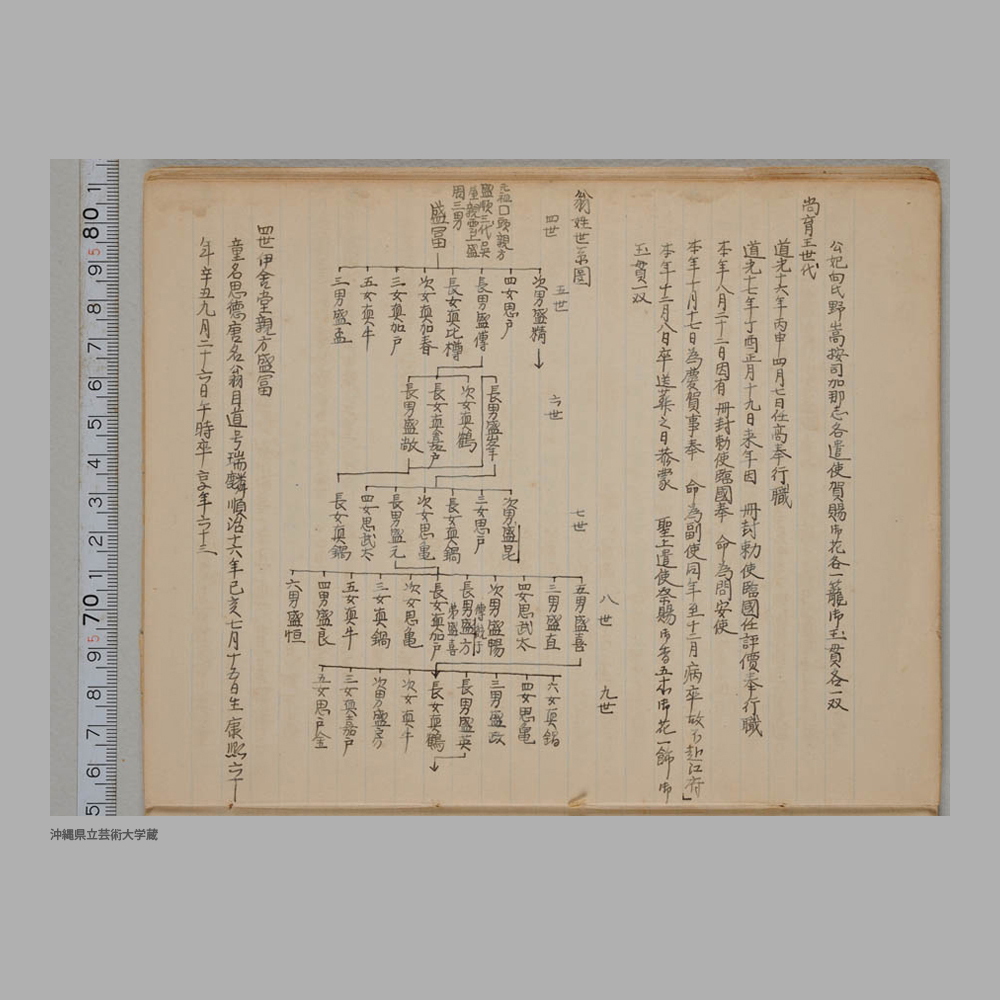 公妃向氏野嵩按司加那志各遣使賀賜御花各一籠御玉貫各一双
尚育王世代
道光十六年丙申四月七日任高奉行職
道光十七年丁酉正月十九日来年因 冊封勅使臨國任評價奉行職
本年八月二十二日因有 冊封勅使臨國奉 命為問安使
本年十月十七日為慶賀事奉 命為副使同年至十二月病卒故不赴江府」
本年十二月八日卒送葬之日恭蒙 聖上遣使祭賜御香五本御花一飾御
玉貫一双
翁姓世系圖
四世
五世
六世
七世
八世
九世
盛冨
次男盛精
四女思戸
長男盛傳
長女真比樽
次女真加春
三女真加戸
五女真牛
三男盛孟
長男盛峯
次女真鶴
長女真嘉戸
長男盛敞
次男盛昆
三女思戸
長女真鍋
次女思亀
長男盛元
四女思武太
長女真鍋
五男盛喜
三男盛直
四女思武太
次男盛賜
長男盛方
弟盛喜
長女真加戸
次女思亀
三女真鍋
五女真牛
四男盛良
六男盛恒
六女真鍋
四女思亀
三男盛政
長男盛英
長女真鶴
次女真牛
次男盛方
三女真嘉戸
五女思戸金
四世伊舎堂親方盛冨
童名思德唐名翁自道号瑞麟順治十六年己亥七月十五日生康熙六十
年辛丑九月二十六日午時卒享年六十三
80
70
沖縄県立芸術大学蔵